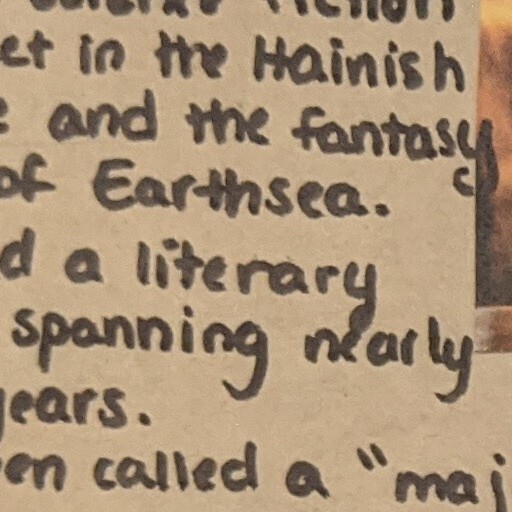 et in the Hainish
and the fantasy
of Earthsea.
d a literary
spanning nearly
years.
en called a "maj